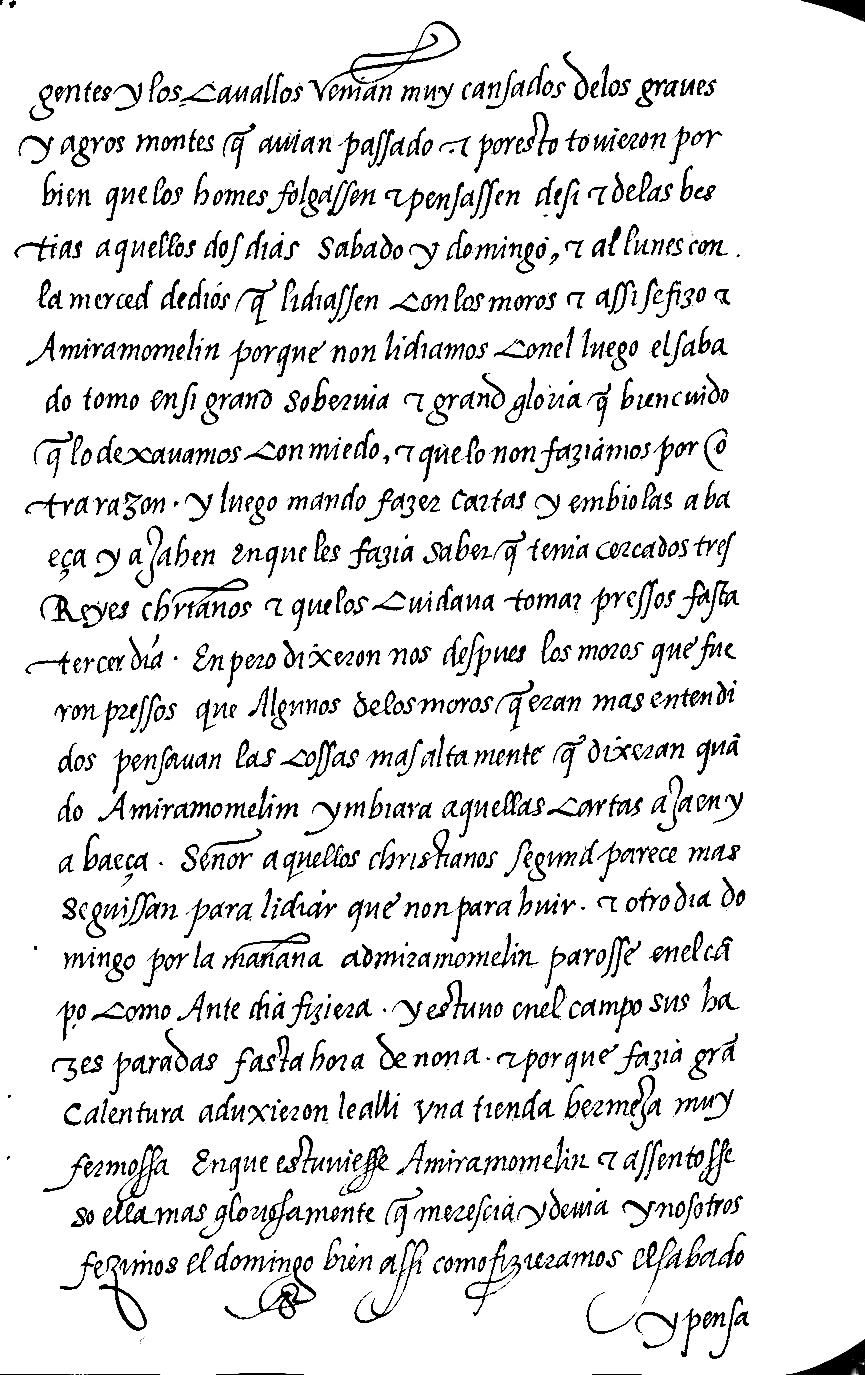 gentes y los Cavallos Venian muy cansados delos graues
y agros montes q̃ auian passado ⁊ poresto touieron por
bien que los homes folgassen ⁊ pensassen desi ⁊ delas bes
tias aquellos dos dias Sabado y domingo, ⁊ al lunes con
la merced de dios q̃ lidiassen Con los moros ⁊ assi se fizo ⁊
Amiramomelin porque non lidiamos Conel luego el saba
do tomo ensi grand Soberuia ⁊ grand gloria q̃ bien cuido
q̃ lo dexauamos Con miedo, ⁊ que lo non faziamos por cõ
tra razon. y luego mando fazer Cartas y embiolas a ba
eça y a Jahen Enque les fazia Saber q̃ tenia cercados tres
Reyes chr̃ianos ⁊ que los Cuidaua tomar pressos fasta
tercer dia. Enpero dixeron nos despues los moros que fue
ron pressos que Algunos delos moros q̃ eran mas entendi
dos pensauan las Cossas mas altamente q̃ dixeran quã
do Amiramomelim ymbiara aquellas Cartas a Jaen y
a baeça. Señor aquellos christianos segund parece mas
Seguissan para lidiar que non para huir. ⁊ otro dia do
mingo por la mañana admiramomelin parosse enel cã
po Como Ante dia fiziera. y estuuo enel campo sus ha
zes paradas fasta hora de nona. ⁊ porque fazia grã
Calentura aduxieron le alli Vna tienda bermeJa muy
fermossa Enque estuuiesse Amiramomelin ⁊ assentosse
so ella mas gloriosamente q̃ merescia y deuia y nosotros
fezimos el domingo bien assi como fizieramos el sabado
y pensa